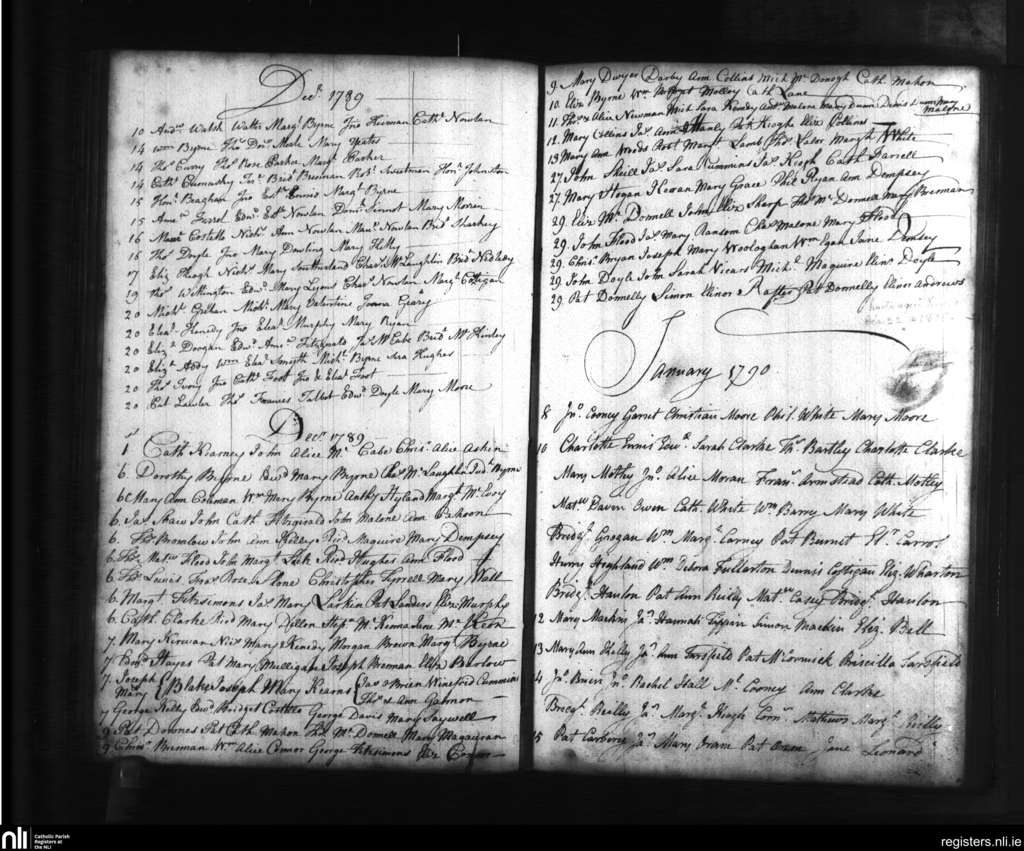 Decr. 1789
10 Andw. Walsh Walter Margt. Byrne Jno Heirnan Cathn. Nowlan
14 Wm Byrne Tho. Dory. Meale Mary Yeates
14 Thos. Curry Thos. Rose Parker Margt. Parker
14 Cathn. Jas. Brid Brennan Robt. Sweetman Honr. Johnston
15 Honr. Baghan Jno Esth. Ennis Margt. Byrne
15 Ann Farrel Edwd. Esth. Nowlan Domk. Sinnot Mary Morrin
16 Maur. Costello Nichs. Ann Nowlan Maur. Nowlan Brid Sharkey
16 Thos. Doyle Jno Mary Dowling Mary Kelly
17 Eliz Keogh Nichs. Mary Southerland Chars. McLaughlin Bridt.
19 Thos. Wilkington Edwd. Mary Lyons Chars. Nowlan Margt. Costigan
20 Michl. Grehan Michl. Mary Valentine Joana Geary
20 Elear. Kenedy Jno Elear. Murphy Mary Ryan
20 Eliz. Doogan Edwd. Ann Fitzgerald Jas. McCabe Bridt. McKinley
20 Eliz. Addy Wm Elear. Smyth Michl. Byrne Sara Hughes
20 Thos. Ivory Jno Cathn. Foot Jno & Elear. Foot
20 Pat Lawler Thos. Frances Talbot Edwd. Doyle Mary Moore
Decr. 1789
1 Cath Kearney John Alice Mc.Cabe Chrisr. Alice Askin
6. Dorothy Byrne Edwd Mary Byrne Chas McLaughlin Judh Byrne
6 Mary Ann Coleman Wm Mary Byrne Anthy Hyland Margt McEvoy
6. Jas Shaw John Cath Fitzgerald John Malone Ann Cahoon
6. Thos Bromlow John Ann Kelly Richd Maguire Mary Dempsey
6 Thos. Mattw Flood John Margt Luke Richd. Hughes Ann Flood
6 Thos. Lewis Fras Rose Christopher Tyrrell Mary Wall
6. Margt Fitzsimons Jas Mary Larkin Pat Sanders Eliz Murphy
6 Cath. Clarke Richd Mary Dillon Stepn. McKenna Jane McKeon
7. Mary Kirwan Nichs Mary Kenedy Morgan Brown Margt Byrne
7 Edwd Hayes Pat Mary Mulligan Joseph Brennan Eliza Barlow
7. Joseph Mary { Blake Joseph Mary Kearns { Jas O Brien Winefred Cummins
Thos & Ann Gannon
7 George Reilly Edwd. Bridget Costello George Davis Mary Saywell
9 Pat Downes Pat Cath. Mahon Thos McDonnell Mary Magauran
9 Chrisr Brennan Wm Alice Connor George Fitzsimons Eliz Connor
9 Mary Dwyer Darby Ann Collins Mich McDonogh Cath Mahon
10. Eliz Byrne Wm Margt Molloy Cath Lane
11. Thos & Alice Newman Mich Sara Kenedy Andw Malone Mary Dunn Denis Dunn Mary Malone
12. Mary Collins Jas Ann Manly Pat Kiogh Eliz Collins
13 Mary Ann Woods Root Mary Lamb Thos Lalor Mary White
27 John Sheill Jas Sara Cummins Jas Kiogh Cath Farrell
27. Mary Hogan Keran Mary Grace Phil Ryan Ann Dempsey
29. Eliz McDonnell John Eliz Sharp Thos McDonnell Mary Brennan
29. John Flood Jas Mary Ransom Chas Malone Mary Flood
29. Chrisr Bryan Joseph Mary Woolaghan Wm Egan Jane Dempsey
29. John Doyle John Sarah Vicars Michl. Maguire Elinr Doyle
29. Pat Donnelly Simon Elinor Rafter Pat Donnelly Elinor Andrews
January 1790
8 Jno. Cooney Garret Christian Moore Phil. White Mary Moore
10 Charlotte Ennis Edwd. Sarah Clarke Ths. Bartley Charlotte Clarke
Mary Mothy Jno. Alice Moran Frans. Armstead Cath. Motley
Matw. Daven Owen Cath White Wm Barry Mary White
Bridgt. Grogan Wm Margt. Carney Pat Burnet Elr. Carrol
Henry Highland Wm Debora Fullerton Dennis Costigan Eliz. Wharton
Bridgt. Hanlon Pat Ann Reilly Matw. Casey Bridgt. Hanlon
12 Mary Mackin Jas. Hannah Tippin Simon Mackin Eliz. Ball
13 Mary Ann Kelly Jas. Ann Sarsfield Pat McCormick Priscilla Sarsfield
Jno. Brien Jno. Rachel Hall Ml. Cooney Ann Clarke
Bridgt. Reilly Jas. Margt. Keogh Corns. Mathews Margt. Reilly
15 Pat Jas. Mary Oram Pat Owen Jane Leonard
nli
Catholic Parish
Registers at
the NLI
registers.nli.ie